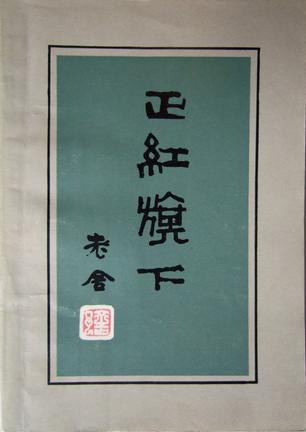 正红旗下
老舍